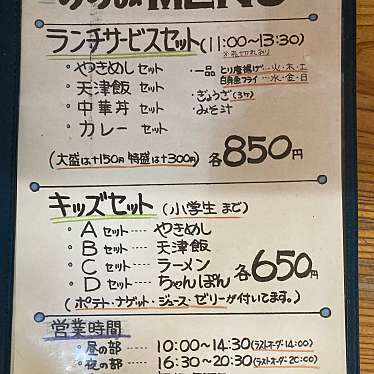 MENU
ランチサービスセット(11:00〜13:30)
※売切れあり
・やきめしセット
・天津飯セット
・中華丼セット
・カレーセット
・一品 とり唐揚げ…火・木・土
白身魚フライ…水・金・日
・ぎょうざ(3ケ)
・みそ汁
(大盛は+150円 特盛は+300円) 各850円
キッズセット(小学生まで)
・Aセット……やきめし
・Bセット……天津飯
・Cセット……ラーメン
・Dセット……ちゃんぽん
各650円
(ポテト・ナゲット・ジュース・ゼリーが付いてます。)
営業時間
・昼の部 10:00〜14:30(ラストオーダー14:00)
・夜の部 16:30〜20:30(ラストオーダー20:00)